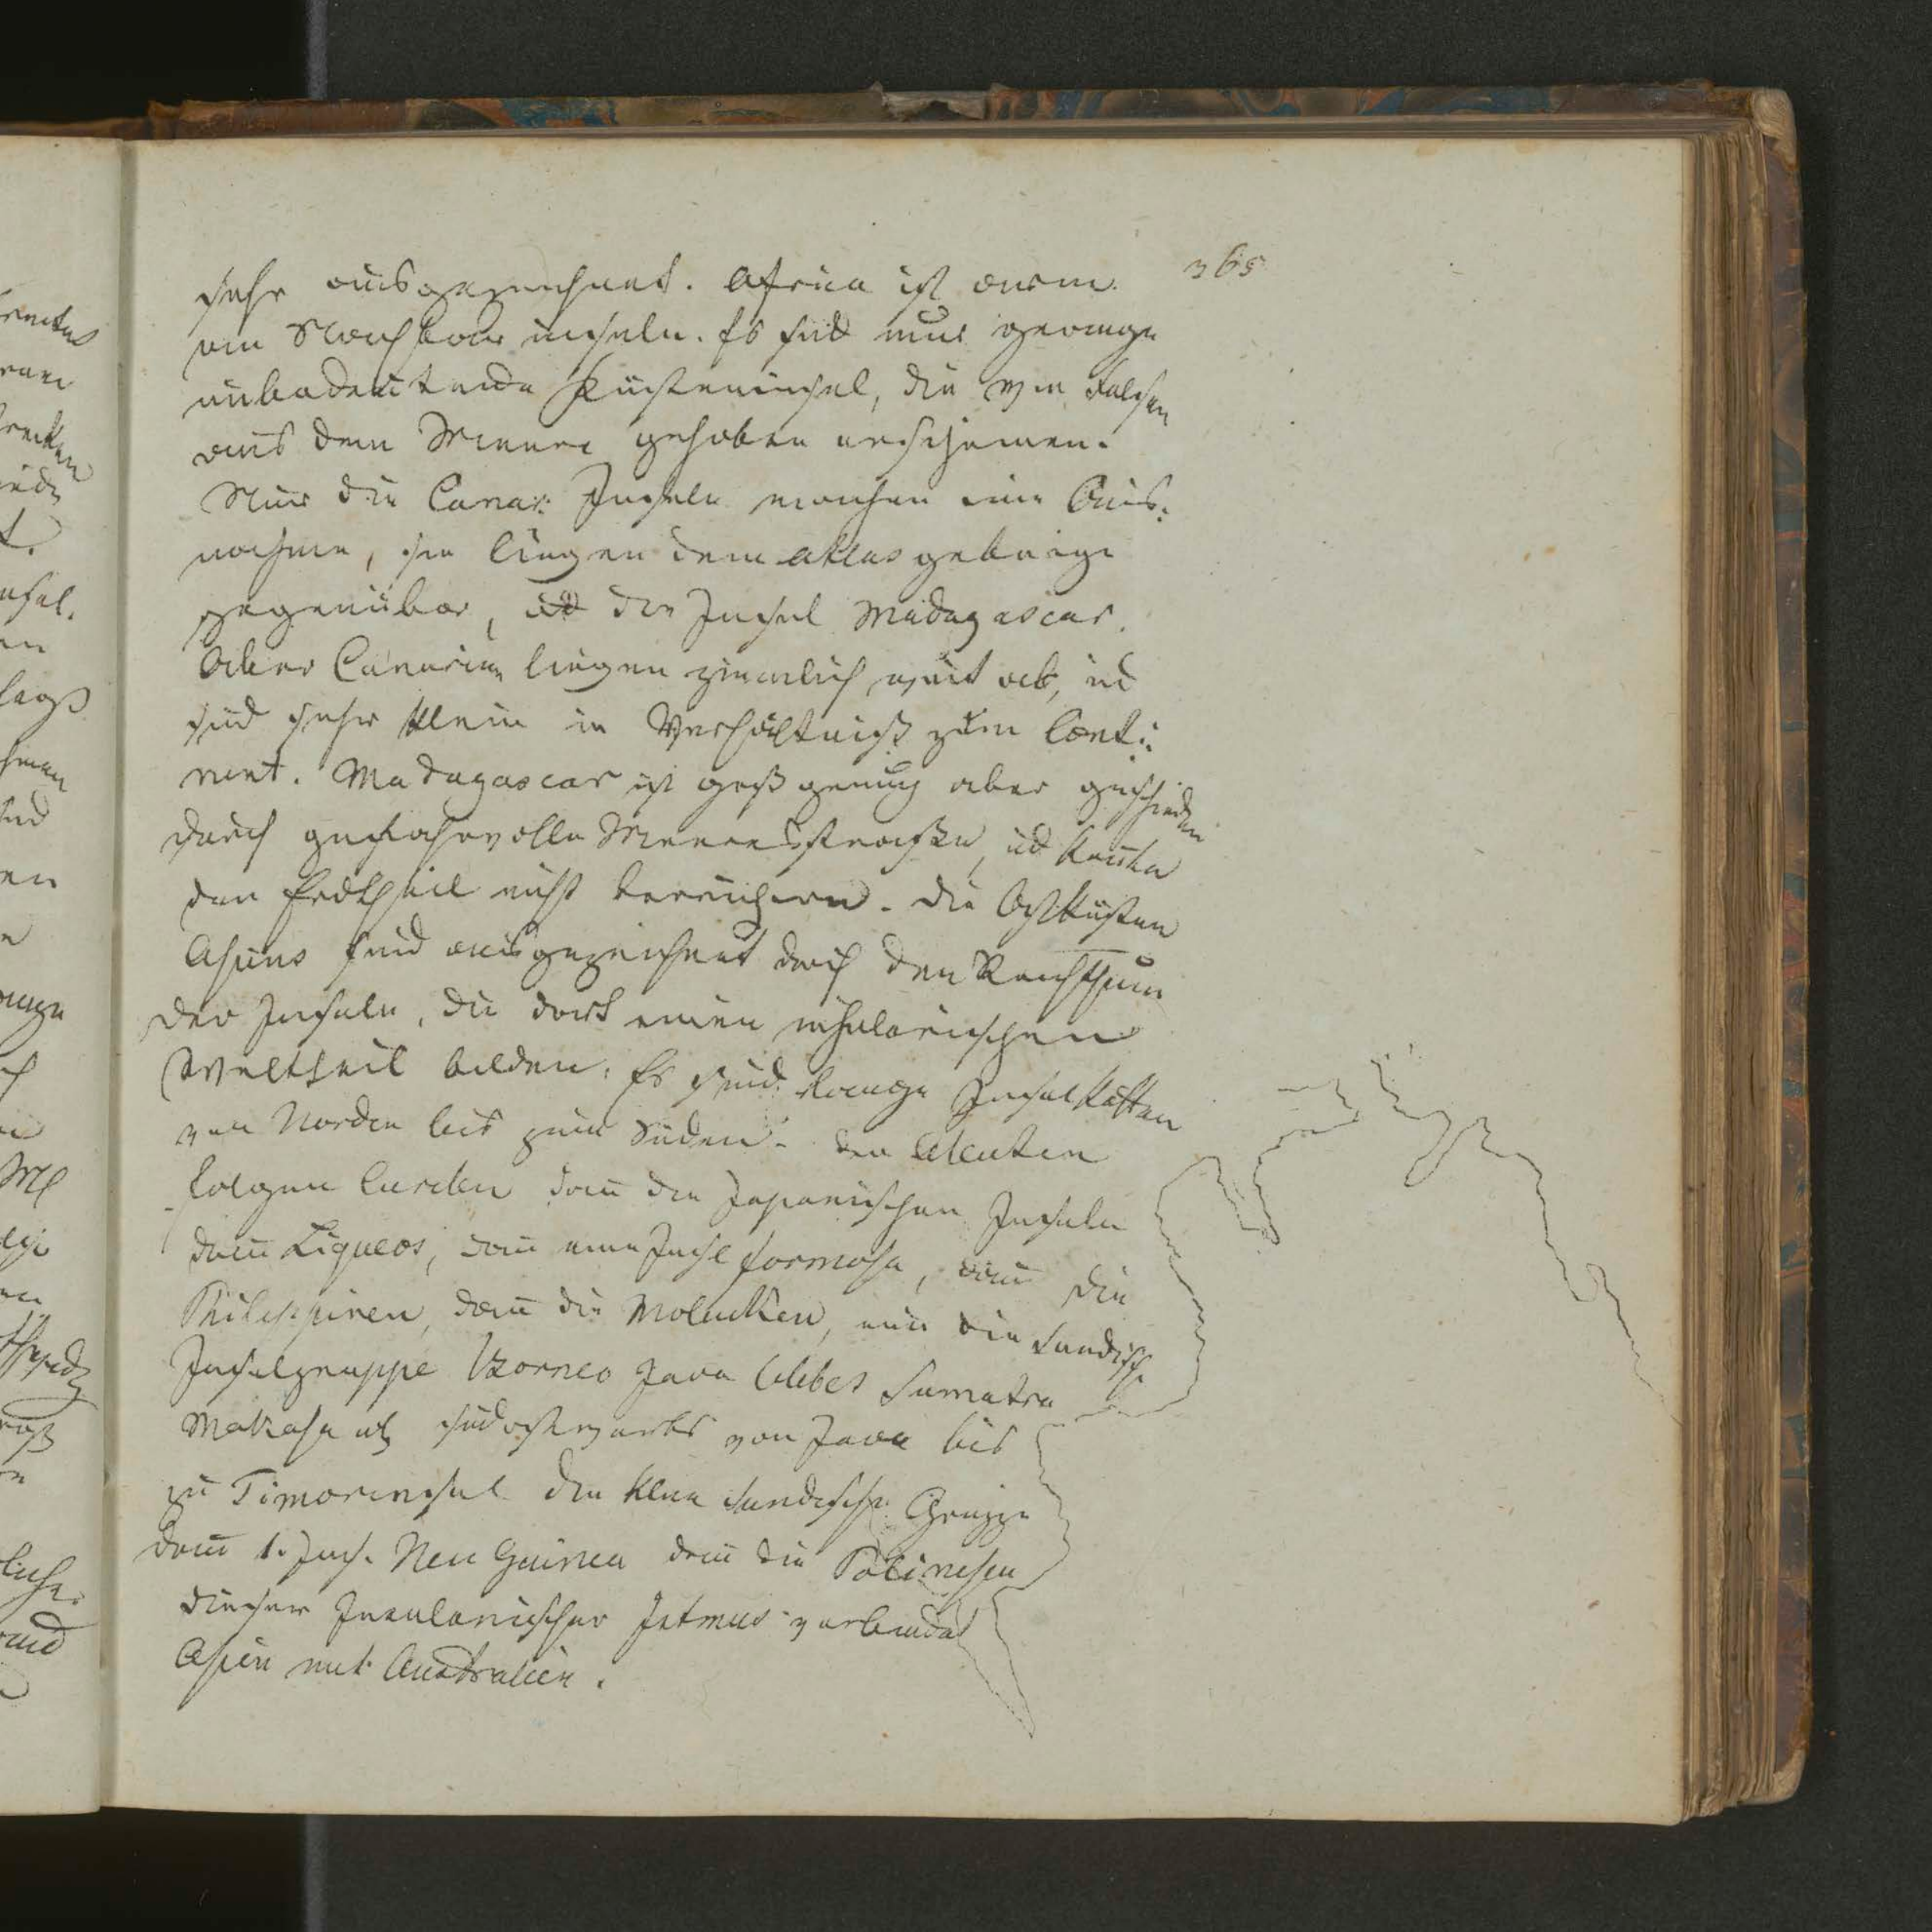 365
sehr ausgezeichnet. Africa ist arm
an Nachbarinseln. Es sind nur geringe
unbedeutende Küsteninsel, die wie Felsen
aus dem Meere gehoben erscheinen.
Nur die Canar: Inseln machen eine Aus-
nahme, sie liegen dem Atlasgebirge
gegenüber, ud die Insel Madagascar.
Aber Canarien liegen ziemlich weit ab, ud
sind sehr klein in Verhältniß zum Conti-
nent. Madagascar ist groß genug aber geschieden
durch gefahrvolle Meeresstraße, ud konnte
den Erdtheil nicht bereichern. Die Ostküsten
Asiens sind ausgezeichnet durch den Reichthum
der Inseln, die dort einen insularischen
Welttheil bilden. Es sind lange Inselketten
von Norden bis zum Süden. Den Aleuten
folgen Curilen dann die Japanischen Inseln
dann Liqueos, dann eine Insel formosa, dann die
Philippinen, dann die Molucken, nun die Sundische
Inselgruppe Borneo Java Celebes Sumatra
Makasa etc südostwärts von Java bis
zu Timorinsel die kleine sundische Gruppe
dann 1. Ins. Neu Guinea dann die Polinesien
dieser Insularischer Istmus verbindet
Asien mit Australien.